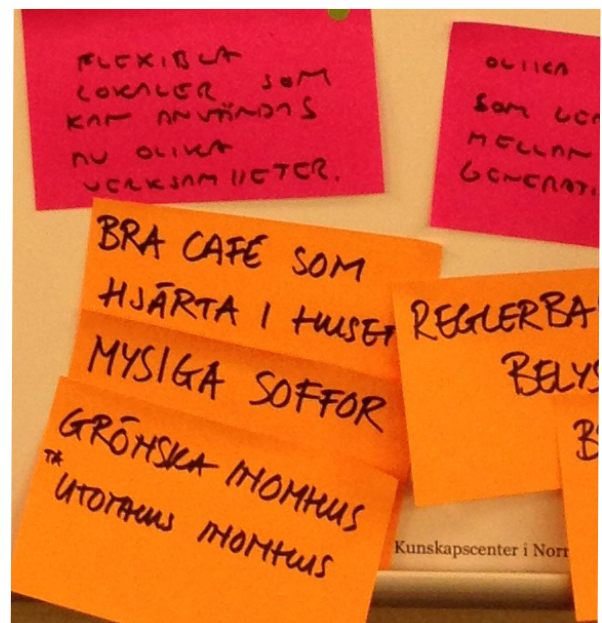 FLEXIBLA
LOKALER SOM
KAN ANVÄNDAS
AV OLIKA
VERKSAMHETER.
OLIKA
SOM
MELLAN
GENERATI
BRA CAFÉ SOM
HJÄRTA I HUSET
MYSIGA SOFFOR
GRÖNSKA INOMHUS
TA
UTOMHUS INOMHUS
REGLERBA
BELYS
B
Kunskapscenter i Norr